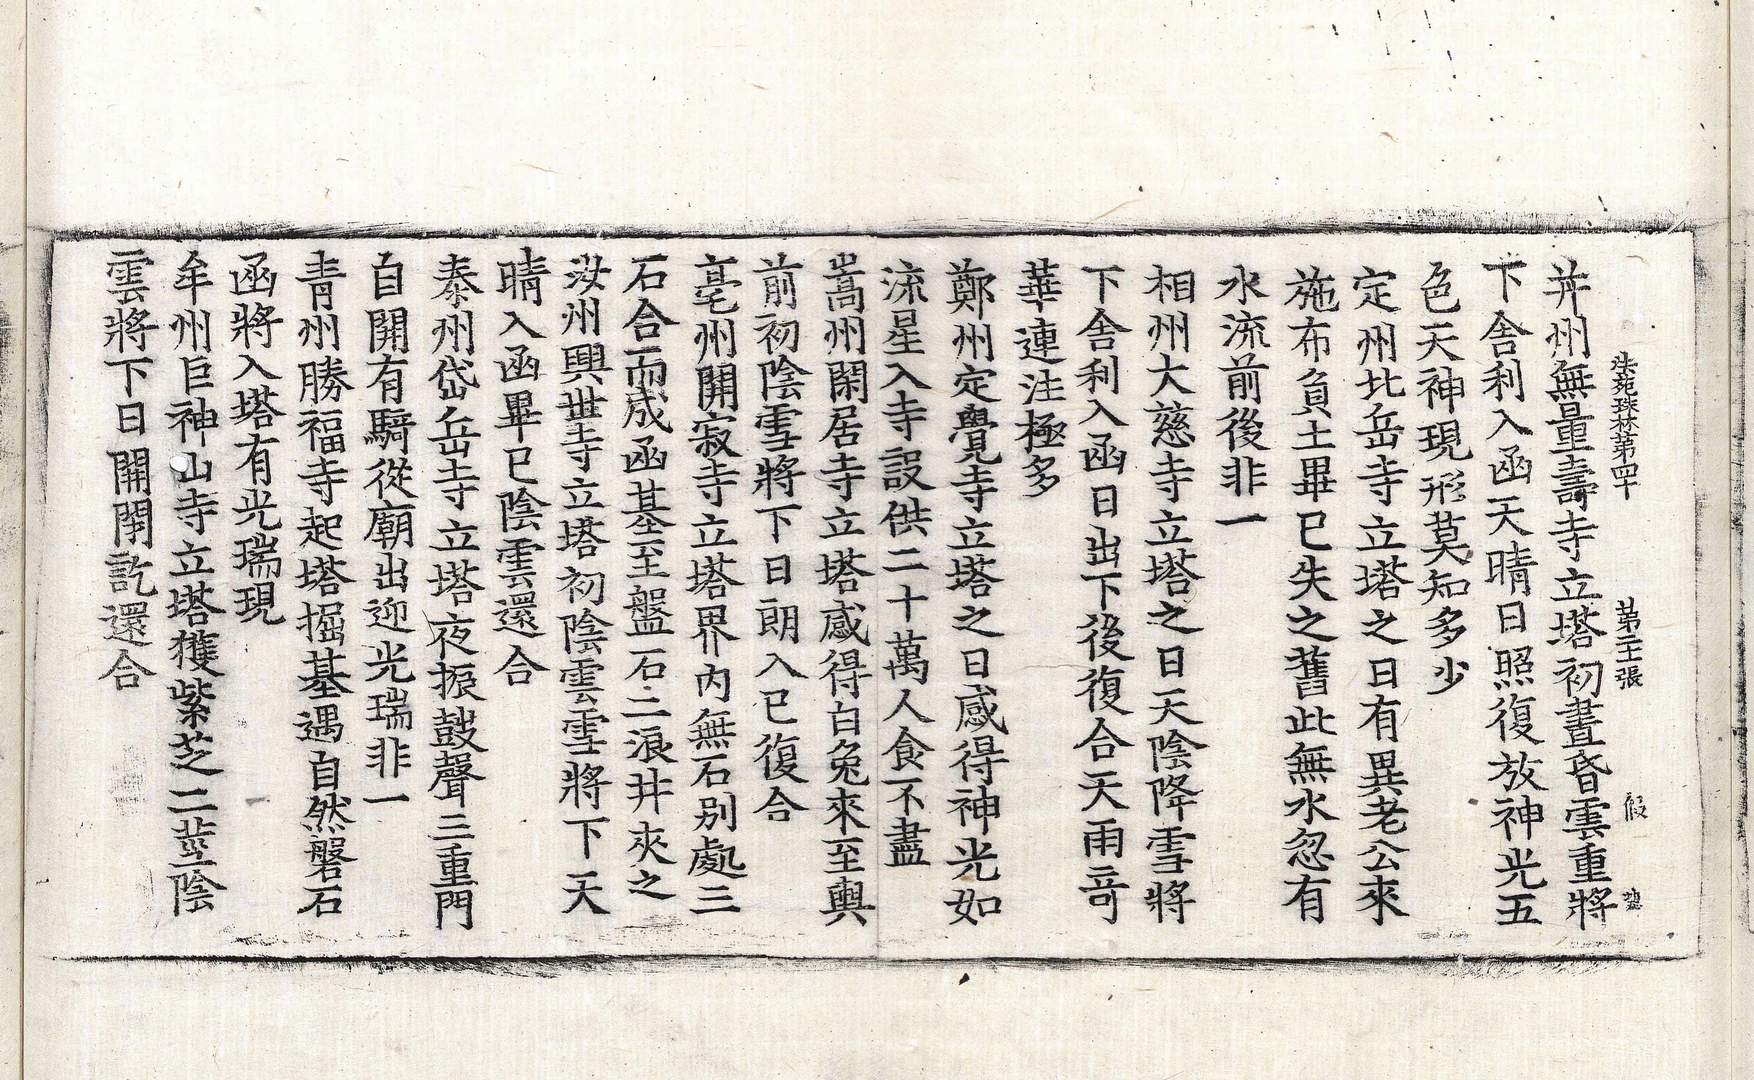 法苑珠林第四十 第二十張 假
幷州無量壽寺立塔初晝昏雲重將
下舍利入函天晴日照復放神光五
色天神現形莫知多少
定州北岳寺立塔之日有異老公來
施布負土畢已失之舊此無水忽有
水流前後非一
相州大慈寺立塔之日天陰降雪將
下舍利入函日出下後復合天雨奇
華連注極多
鄭州定覺寺立塔之日感得神光如
流星入寺設供二十萬人食不盡
嵩州閑居寺立塔感得白兔來至輿
前初陰雪將下日朗入已復合
亳州開寂寺立塔界內無石別處三
石合而成函基至盤石二浪井夾之
汝州興世寺立塔初陰雲雪將下天
晴入函畢已陰雲還合
泰州岱岳寺立塔夜振鼓聲三重門
自開有騎從廟出迎光瑞非一
青州勝福寺起塔掘基遇自然磐石
函將入塔有光瑞現
牟州巨神山寺立塔獲紫芝二莖陰
雲將下日開閉訖還合